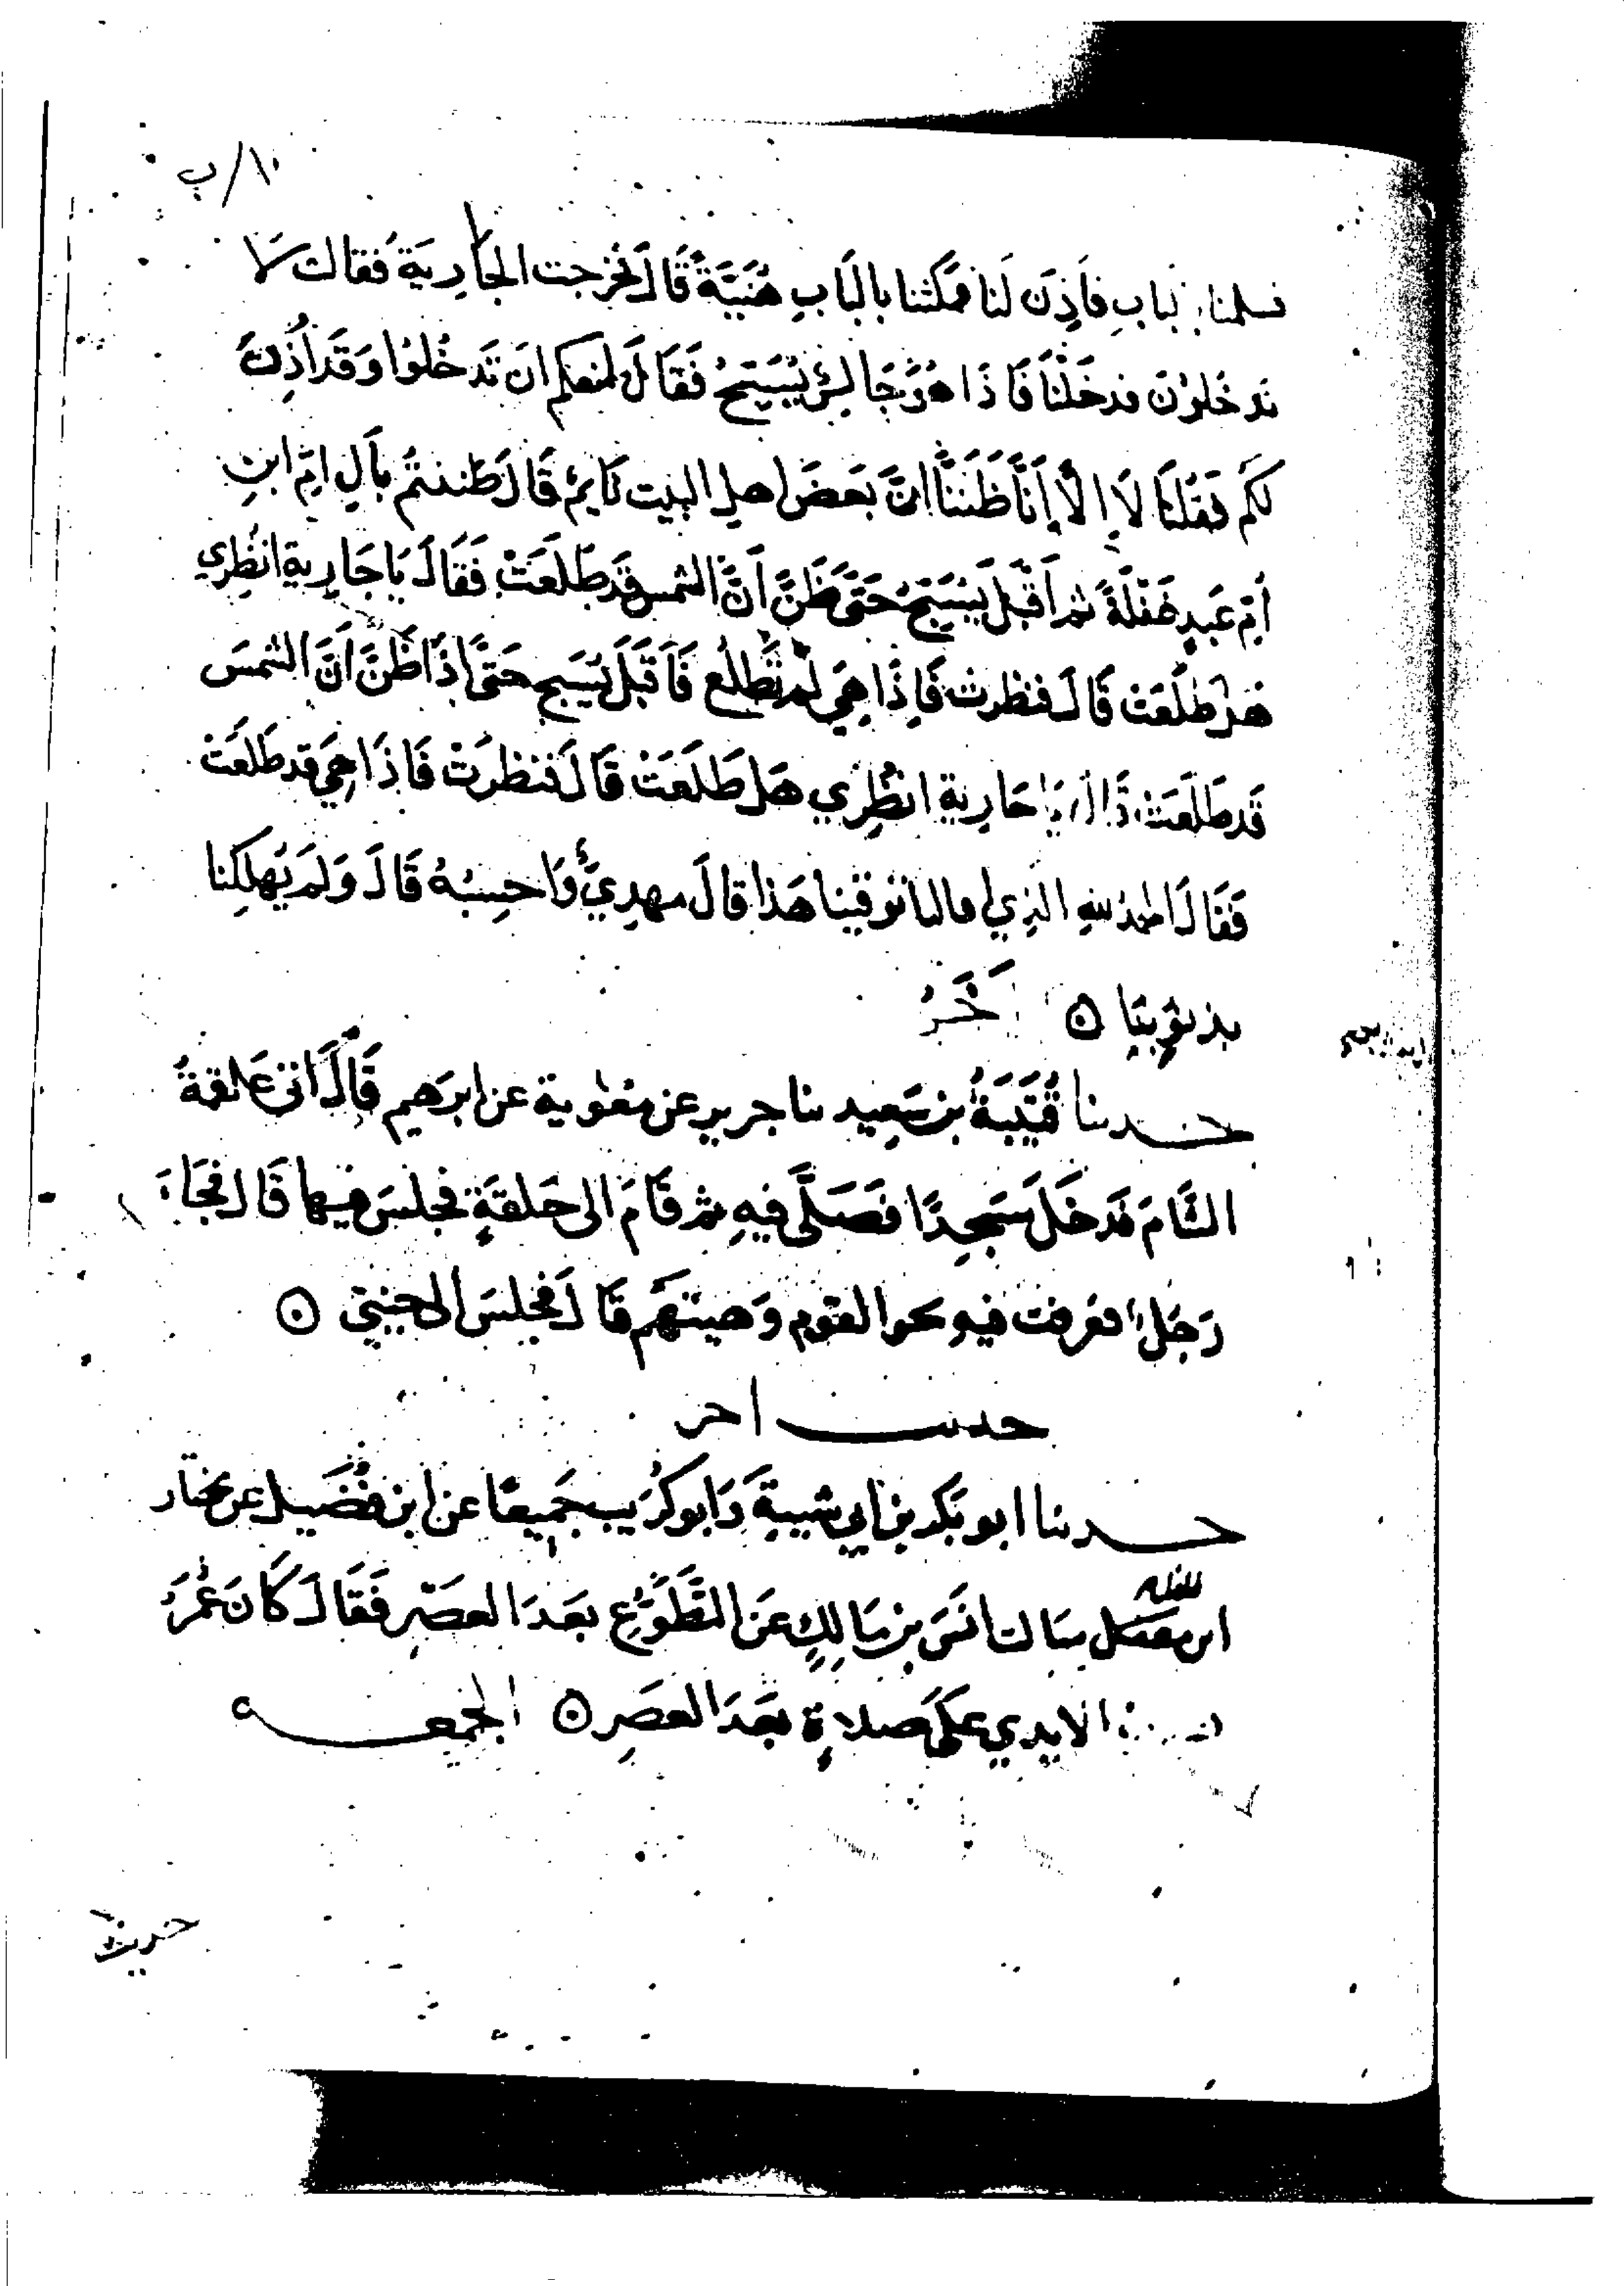 ١٠/ب
فسلمنا بالباب فَأَذِنَ لَنَا فمكثنا بالبَابِ هُنَيَّةً قَالَ فخرجت الجَارِيَة فَقالت أَلا
تدخُلُونَ فدخَلْنَا فَاذَا هُوَ جَالِسٌ يُسَبِّحُ فَقَالَ مَا منعكم ان تَدخُلُوا وَقَد أُذِنَ
لكُم فَقُلنَا لَا الَّا أَنَّا ظَنَنَّا انَّ بَعضَ اهل البيت نَايِمٌ قَالَ ظننتُم بآلِ ابنِ
أُمِّ عَبدٍ غَفْلَةً ثم أَقْبَلَ يُسَبِّحُ حَتَّى ظَنَّ أَنَّ الشمس قَد طَلَعَتْ فَقَالَ يَا جَارِية انظُرِي
هَل طَلَعَتْ قَالَ فنظرت فَاِذَا هِيَ لَم تَطلُع فَأَقبَلَ يُسَبِّح حَتَّى اذَا ظَنَّ أَنَّ الشمسَ
قَد طَلَعَتْ قَالَ يا جَارِية انظُرِي هَل طَلَعَتْ قَالَ فنظرَتْ فَاذَا هِيَ قد طَلَعَتْ
فَقَالَ الحمدُ للهِ الذِي اقالنا يومنا هَذا قالَ مهدِيٌّ وَاحسِبُهُ قَالَ وَلَم يُهلِكنا
بذنُوبِنَا ۞ آخَرُ
حدثنا قُتَيبَةُ بن سَعِيد ثنا جرير عن مغيرة عن ابرَهيم قَالَ اتى عَلقمةُ
الشَّامَ فَدخَلَ مَسجِدًا فَصَلَّى فيهِ ثم قَامَ الى حَلقَةٍ فجلسَ فيها قَالَ فَجَاءَ
رَجُلٌ فعرفت فيهِ تحوش القوم وَهيئَتهُم قَالَ فجلسَ الى جنبي ۞
حديث اخر
حدثنا ابو بَكر بن ابي شيبةَ وَابو كُرَيب جَمِيعًا عن ابن فُضَيل عن مختار
ابن فلفل سَالت انَسَ بن مَالِكٍ عَن التَّطَوُّعِ بَعدَ العصْرِ فَقَالَ كَانَ عُمَرُ
يضرب الايدي عَلَى صلاةٍ بَعدَ العصرِ ۞ الجمعه
حديث